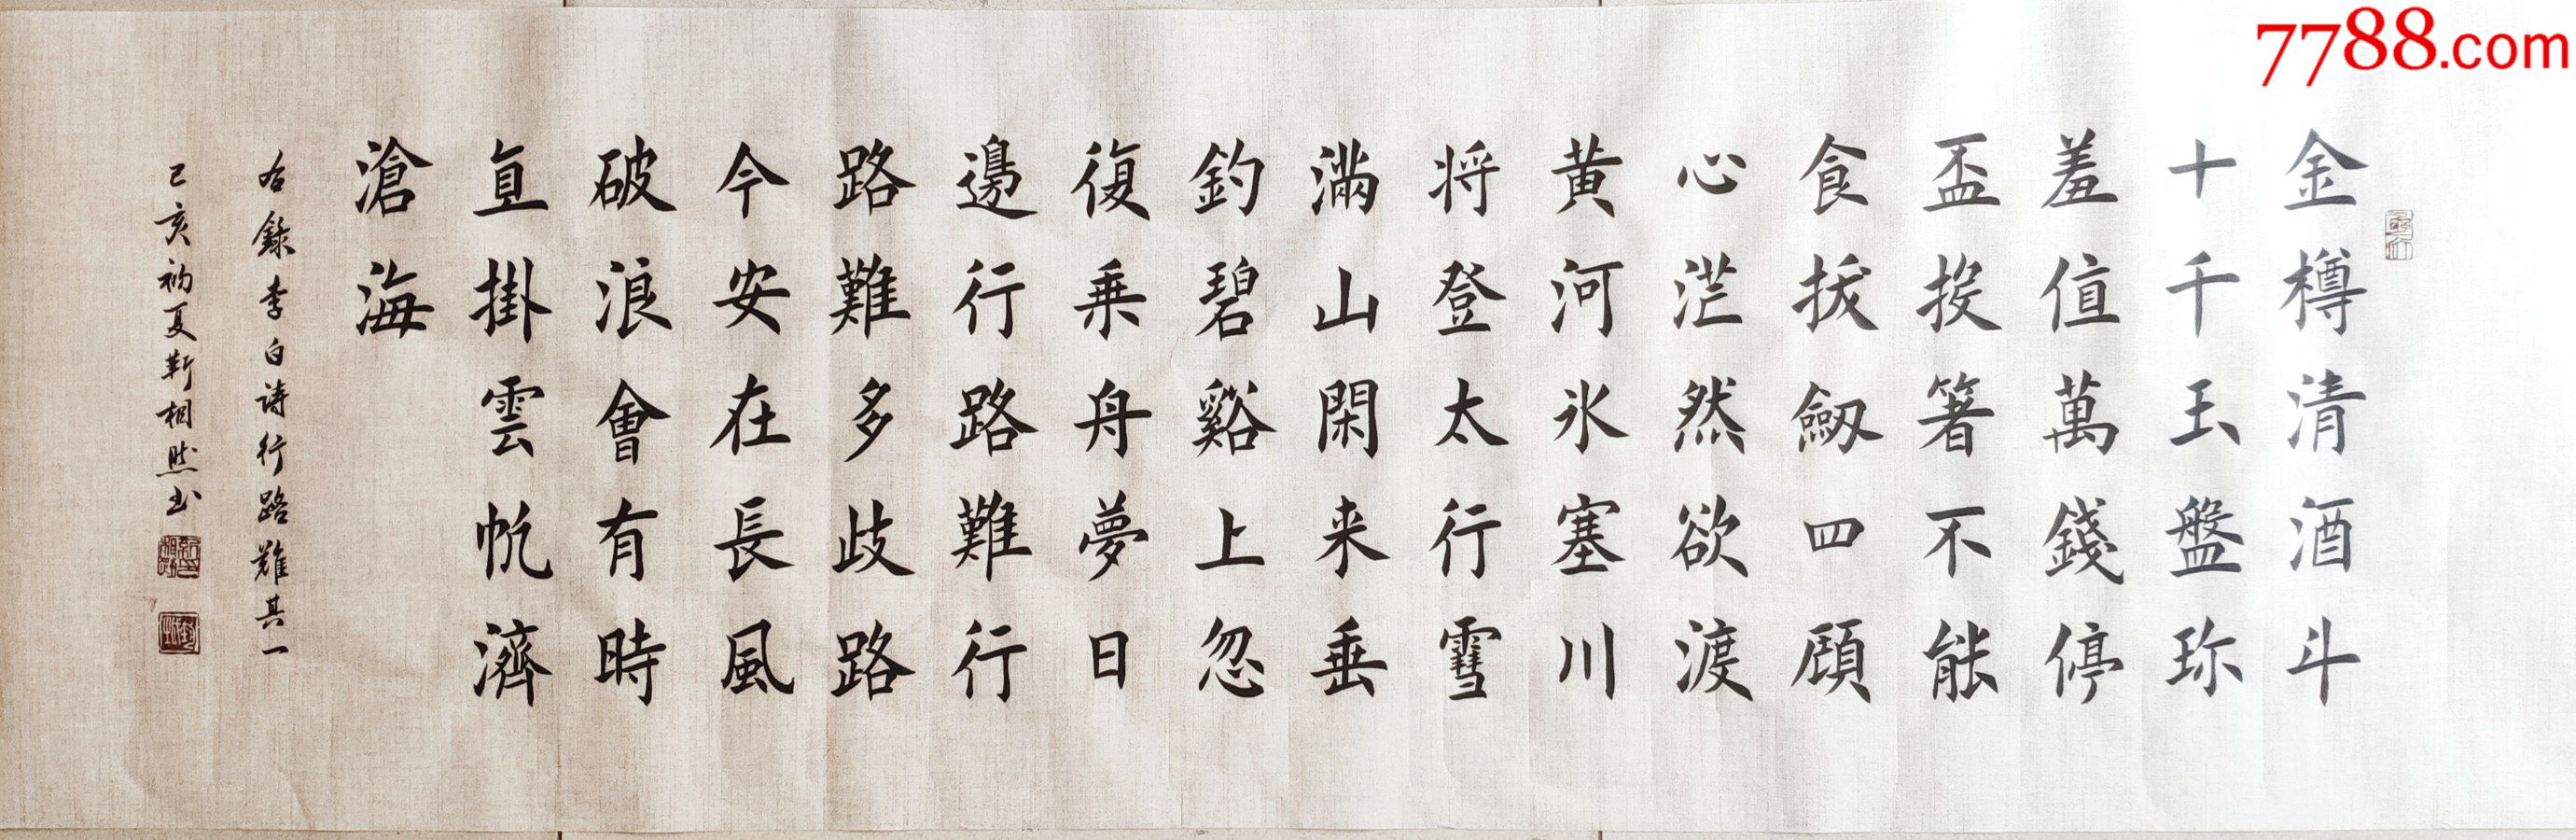 7788.com
金樽清酒斗
十千玉盤珎
羞值萬錢停
盃投箸不能
食拔劔四顧
心茫然欲渡
黄河氷塞川
将登太行雪
滿山閑来垂
釣碧谿上忽
復乗舟夢日
邊行路難行
路難多歧路
今安在長風
破浪會有時
直掛雲帆濟
滄海
右錄李白诗行路難其一
己亥初夏靳相然书